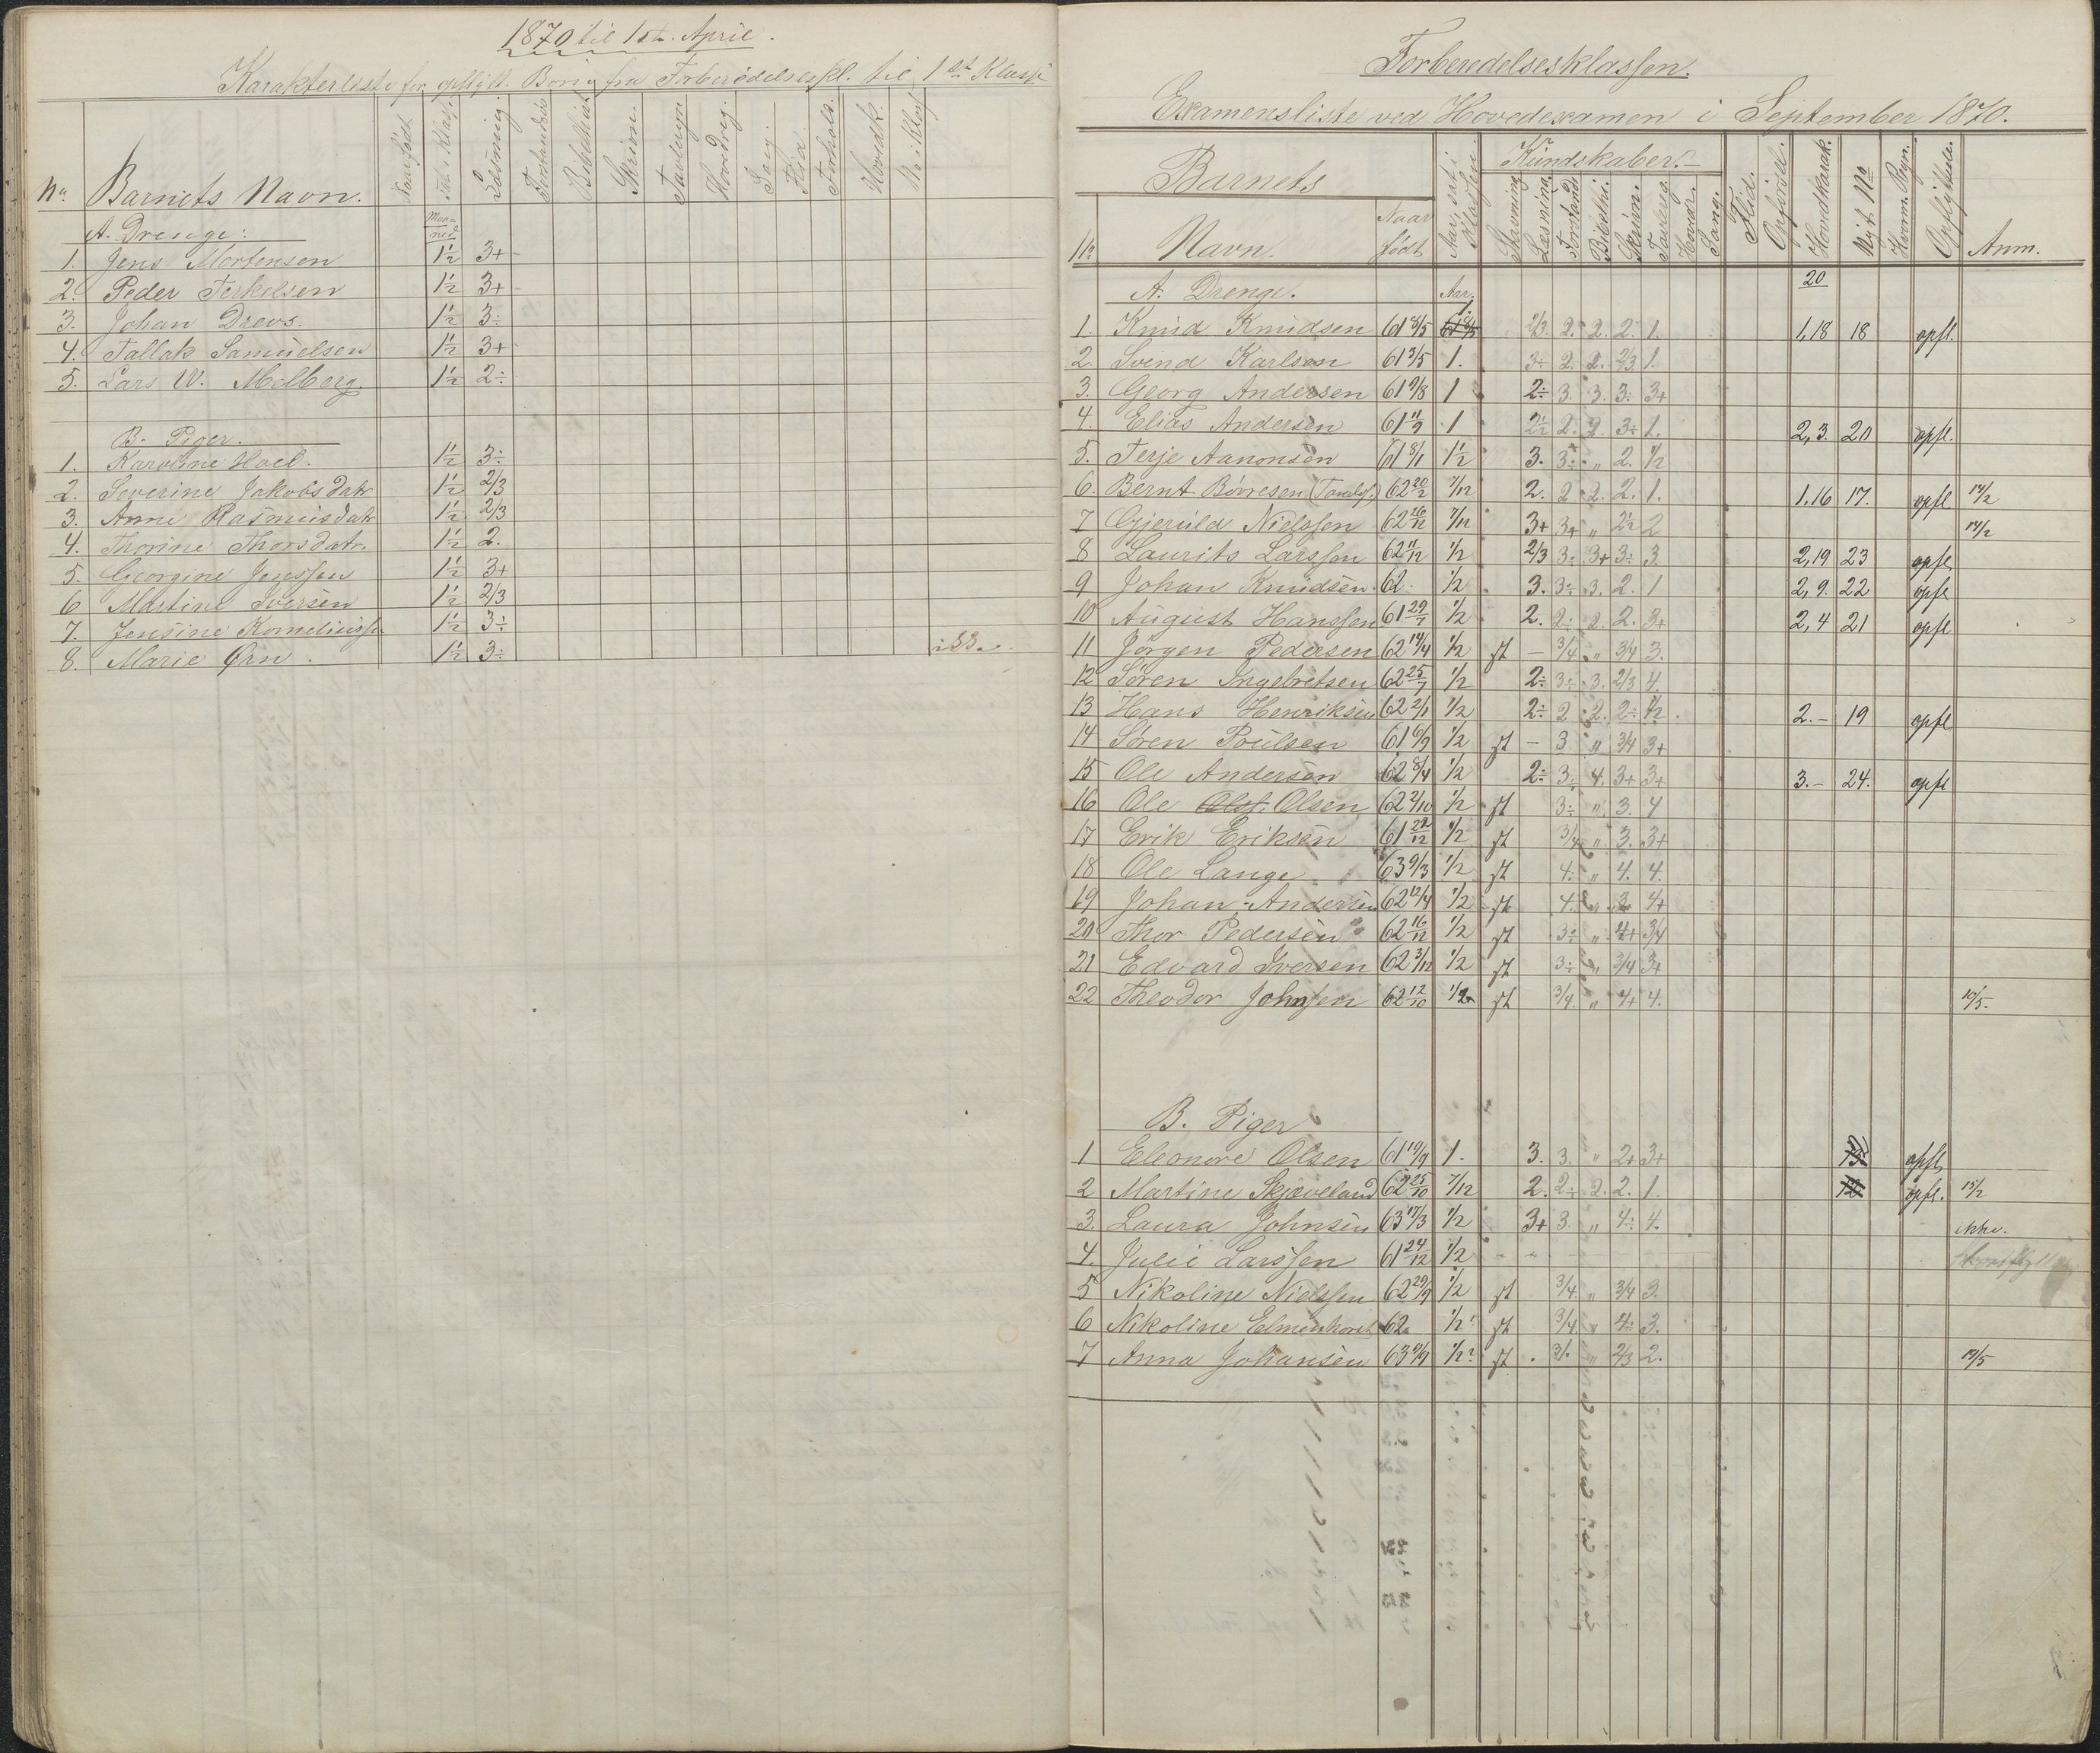 1870 til 1ste April.
Karakterliste for Børn fra Forberedelseskl. til 1ste Klasse
No Barnets Navn. Naar født. Tid i Klass. Læsning. Forstandsø. Bibelhist. Skrivn. Tavleregn. Hovedreg. Sang. Flid. Forhold. Hovedk. No i Klass
A. Drenge: Maa-ned
1. Jens Mortensen 1½ 3+
2. Peder Terkelsen 1½ 3+
3. Johan Drevs. 1½ 3÷
4. Tallak Samuelsen 1½ 3+
5. Lars W. Melberg. 1½ 2÷
B. Piger.
1. Karoline Hoel. 1½ 3÷
2. Severine Jakobsdatr 1½ 2/3
3. Anne Rasmusdatr 1½ 2/3
4. Thorine Thorsdatr. 1½ 2.
5. Georgine Jenssen 1½ 3+
6 Martine Iversen 1½ 2/3
7. Jensine Korneliussen 1½ 3÷
8. Marie Ørn. 1½ 3÷
Forberedelsesklassen.
Examensliste ved Hovedexamen i September 1870.
Barnets Kundskaber.
No Navn. Naar født Aar, Sidst i Klassen. Stavning Læsning. Forstand. Bibelhi. Skrivn. Tavlereg. Hovedr. Sang. Flid. Opførsel. Hovedkarak. Nyt No Opflyttes. Anm.
A. Drenge. Aar. 20
1. Knud Knudsen 61 8/5 1. 2/3 2. 2. 2. 1. 1,18 18 opfl.
2. Svend Karlsen 61 3/5 1. 3÷ 2. 2. 2/3 1.
3. Georg Andersen 61 9/8 1 2÷ 3. 3. 3÷ 3+
4. Elias Andersen 61 11/9 1 2½ 2. 2. 3+ 1. 2,3. 20 opfl.
5. Terje Aanonsen 61 8/1 1½ 3. 3÷ " 2. 1/2
6. Bernt Børresen 62 20/2 7/12 2. 2 2. 2. 1. 1,16 17. opfl 14/2
7 Gjeruld Nielssen 62 26/12 7/12 3+ 3+ " 2½ 2 14/2
8 Laurits Larssen 62 11/12 1/2 2/3 3÷ 3+ 3÷ 3. 2,19 23 opfl
9 Johan Knudsen. 62. 1/2 3. 3÷ 3. 2. 1 2,9. 22 opfl
10 August Hanssen 61 29/7 1/2 2. 2÷ 2. 2. 3+ 2,4 21 opfl
11 Jørgen Pedersen 62 14/4 1/2 st – 3/4 " 3/4 3.
12 Søren Ingebretsen 62 25/7 1/2 2÷ 3÷ 3. 2/3 4.
13 Hans Henriksen 62 2/1 1/2 2÷ 2 2. 2÷ 1/2. 2.– 19 opfl
14 Søren Poulsen 61 6/9 1/2 st – 3 " 3/4 3+
15 Ole Andersen 62 8/4 1/2 2÷ 3÷ 4. 3+ 3+ 3.– 24. opfl
16 Ole Olsen 62 2/10 1/2 st 3÷ " 3. 4
17 Erik Eriksen 61 22/12 1/2 st 3/4 " 3. 3+
18 Ole Lange 63 9/3 1/2 st 4÷ " 4. 4.
19 Johan Andersen 62 12/4 1/2 st 4. " 3+ 4+
20 Thor Pedersen 62 16/12 1/2 st 3÷ " 4+ 3/4
21 Edvard Iversen 62 3/12 1/2 st 3÷ " 3/4 3+
22 Theodor Johnsen 62 12/10 1/2 st 3/4 " 4+ 4. 10/5.
B. Piger
1 Eleonore Olsen 61 19/9 1. 3. 3. " 2+ 3+ opfl,
2 Martine Skjæveland 62 25/10 7/12 2. 2÷ 2. 2. 1. opfl. 15/2
3. Laura Johnsen 63 17/3 1/2 3+ 3. " 4÷ 4.
4. Julie Larssen 61 24/12 1/2
5 Nikoline Nielssen 62 29/9 1/2 st 3/4 " 3/4 3.
6 Nikoline Elmenhorst 62. 1/2 st 3/4. " 4÷ 3.
7 Anna Johansen 63 9/9 1/2 st . 3/. " 2/3 2. 19/5